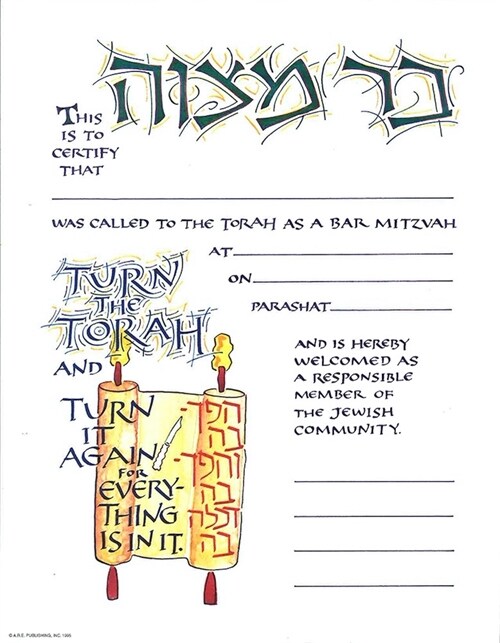 בר מצוה
THIS
IS TO
CERTIFY
THAT
WAS CALLED TO THE TORAH AS A BAR MITZVAH
AT
ON
PARASHAT
TURN
THE
TORAH
AND
TURN
IT
AGAIN
FOR
EVERY-
THING
IS IN IT.
הפך-
בה
והפך-
בה
בה
AND IS HEREBY
WELCOMED AS
A RESPONSIBLE
MEMBER OF
THE JEWISH
COMMUNITY.
© A.R.E. PUBLISHING, INC. 1995